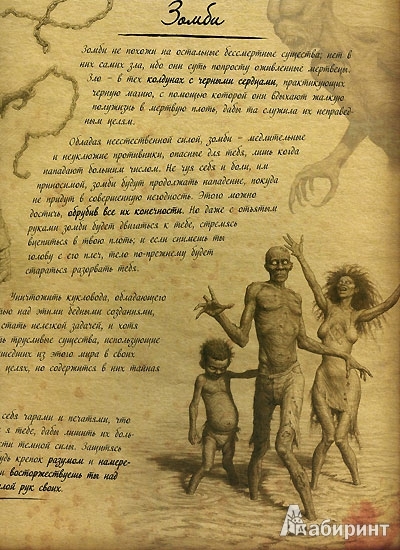 Зомби
Зомби не похожи на остальные бессмертные существа; нет в
них самих зла, ибо они суть попросту оживленные мертвецы.
Зло – в тех колдунах с черными сердцами, практикующих
черную магию, с помощью которой они вдыхают жалкую
полужизнь в мертвую плоть, дабы та служила их неправед-
ным целям.
Обладая неестественной силой, зомби – медлительные
и неуклюжие противники, опасные для тебя, лишь когда
нападают большим числом. Не чуя себя и боли, им
приносимой, зомби будут продолжать нападение, покуда
не придут в совершенную негодность. Этого можно
достичь, обрубив все их конечности. Но даже с отъятыми
руками зомби будет двигаться к тебе, стремясь
вцепиться в твою плоть; и если снимешь ты
голову с его плеч, тело по-прежнему будет
стараться разорвать тебя.
Уничтожить кукловода, обладающего
ью над этими бедными созданиями,
стать нелегкой задачей, и хотя
ь трусливые существа, использующие
шедших из этого мира в своих
целях, но содержится в них тайная
себя чарами и печатями, что
я тебе, дабы лишить их боль-
сти темной силы. Защитясь
удь крепок разумом и намере-
и восторжествуешь ты над
елой рук своих.
Лабиринт